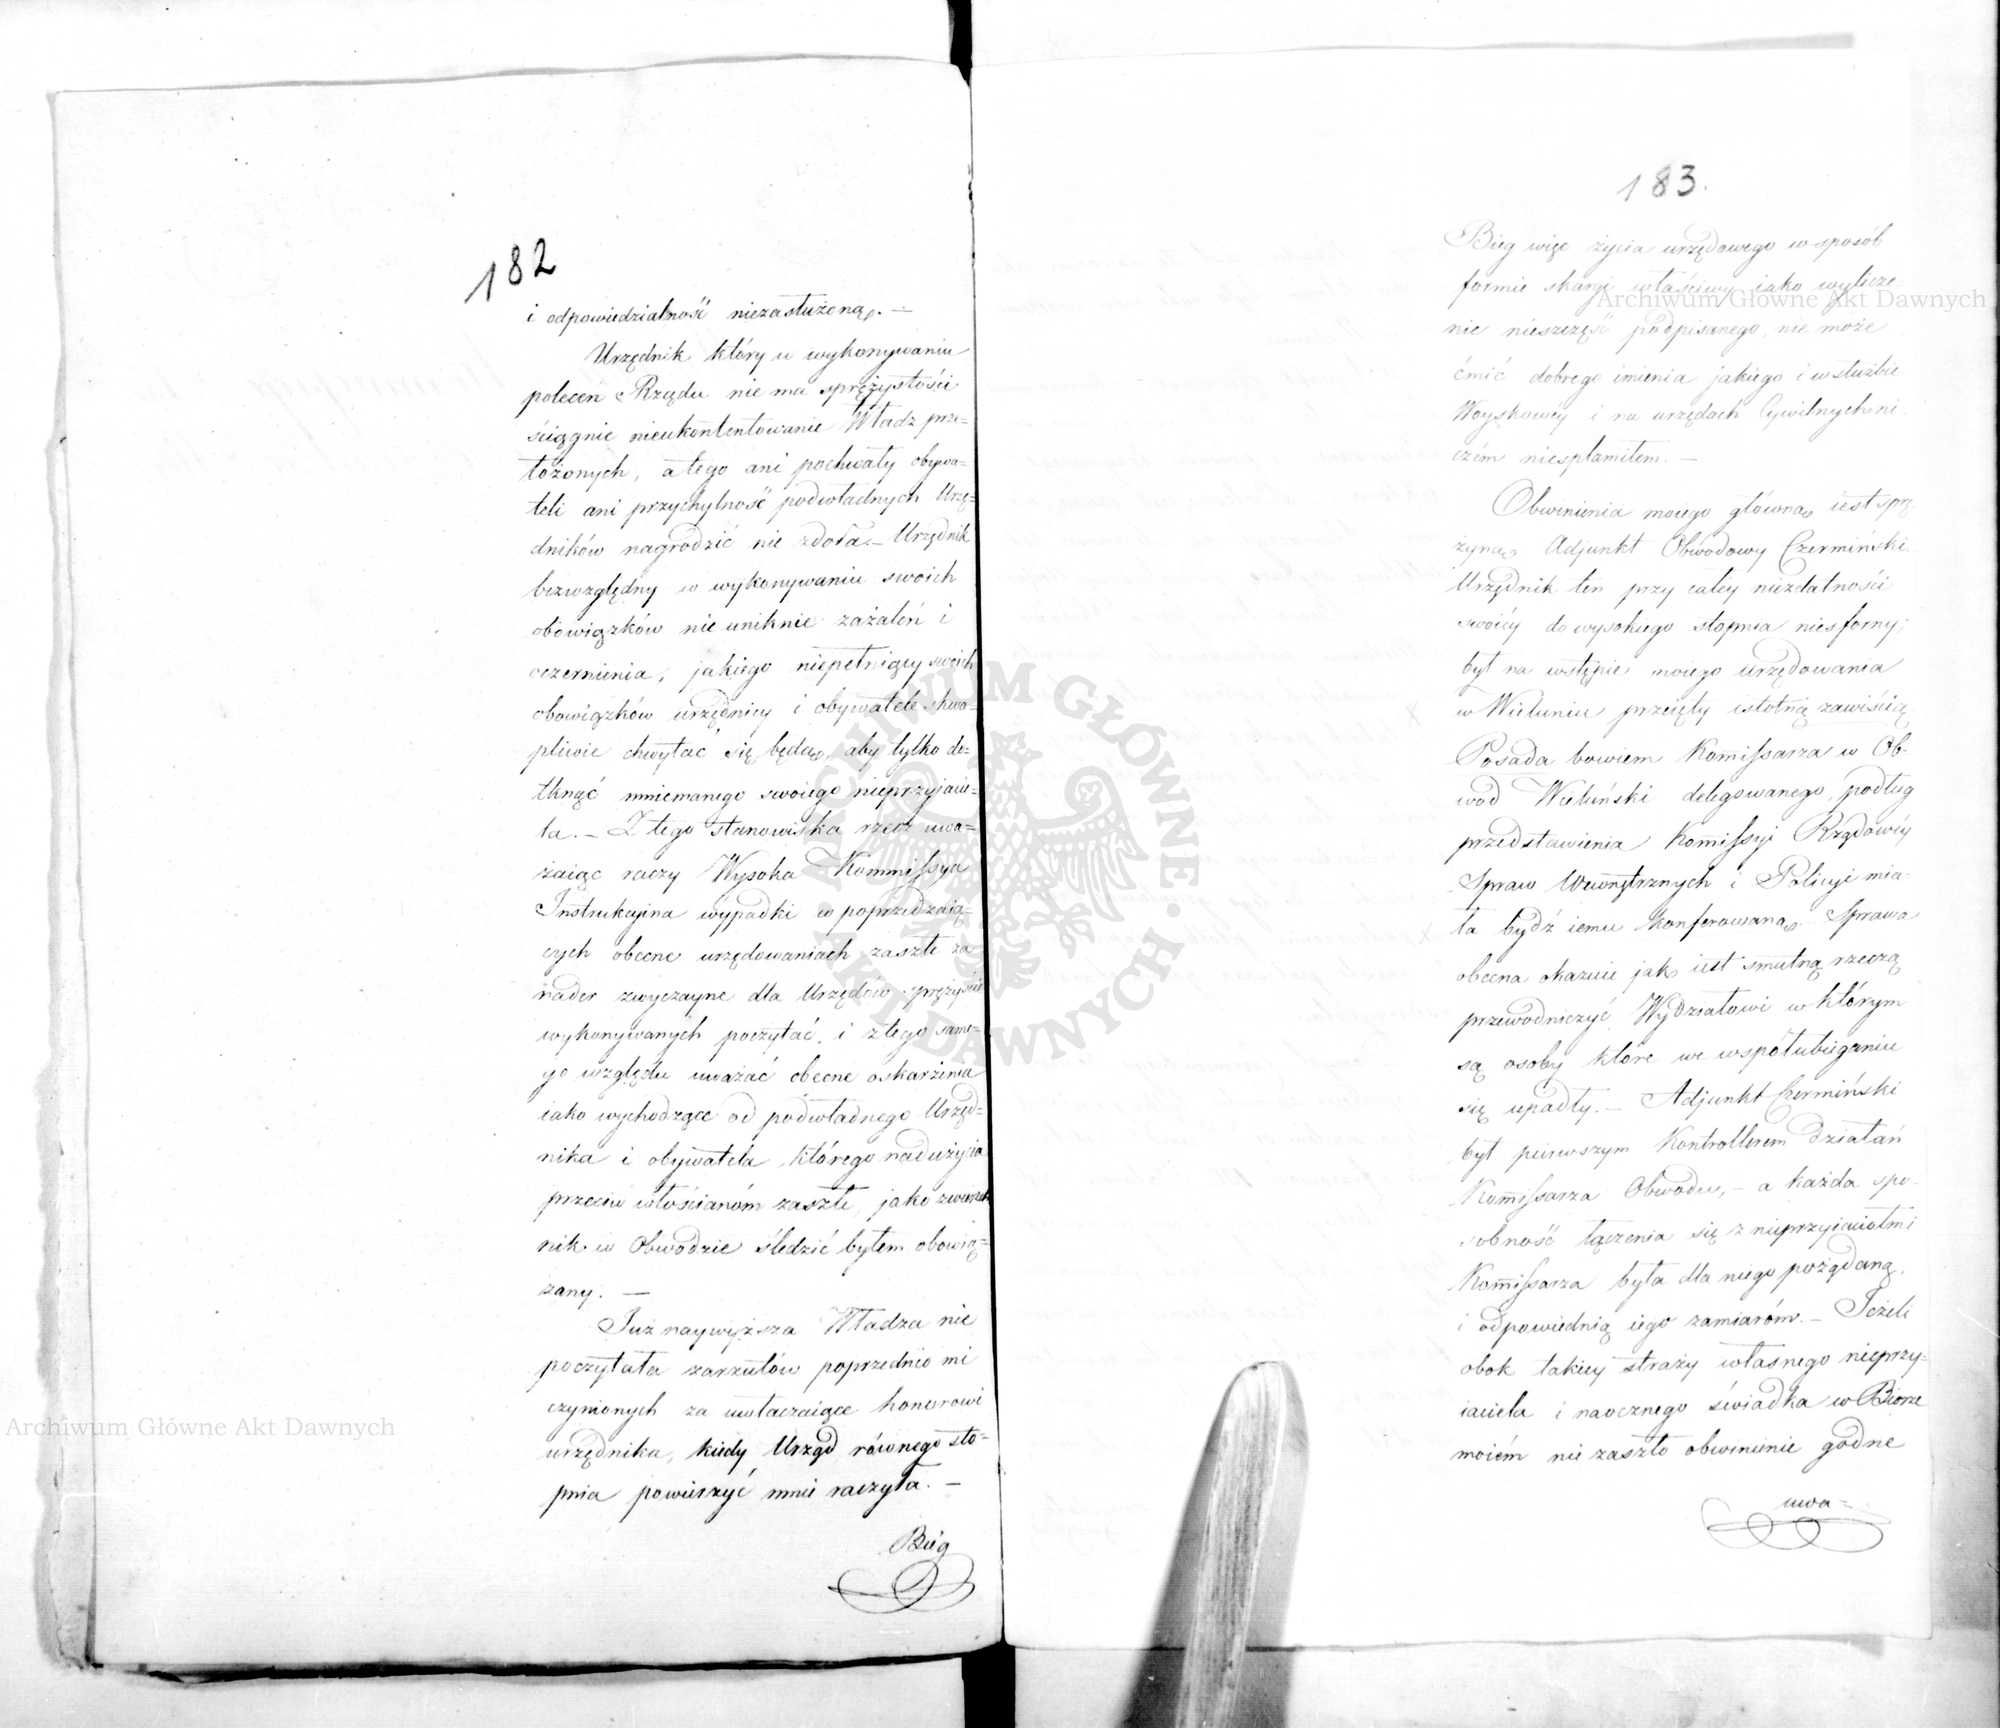 182
i odpowiedzialność niezasłużoną. —
Urzędnik który w wykonywaniu
poleceń Rządu nie ma sprężystości
ściągnie nieukontentowanie Władz prze=
łożonych, a tego ani pochwały obywa=
teli ani przychylność podwładnych Urzę=
dników nagrodzić nie zdoła. — Urzędnik
bezwzględny w wykonywaniu swoich
obowiązków nie uniknie zażaleń i
oczernienia, jakiego niepełniący swoich
obowiązków urzędnicy i obywatele skwa=
pliwie chwytać się będą, aby tylko do=
tknąć mniemanego swoiego nieprzyjacie=
la. — Z tego stanowiska rzecz uwa=
żaiąc raczy Wysoka Kommissya
Instrukcyjna wypadki w poprzedzaią=
cych obecne urzędowaniach zaszłe za
nader zwyczayne dla Urzędów sprężyście
wykonywanych poczytać, i z tego same=
go względu uważać obecne oskarżenia
iako wychodzące od podwładnego Urzęd=
nika i obywatela, którego nadużycia
przeciw włościanom zaszłe, jako zwierzch
nik w Obwodzie śledzić byłem obowią=
zany. —
Już naywyższa Władza nie
poczytała zarzutów poprzednio mi
czynionych za uwłaczaiące honorowi
urzędnika, kiedy Urząd równego sto=
pnia powierzyć mnie raczyła. —
Bieg
183.
Bieg więc życia urzędowego w sposób
formie skargi właściwy iako wylicze-
nie nieszczęść podpisanego, nie może
ćmić dobrego imienia jakiego i w służbie
Woyskowey i na urzędach Cywilnych ni
czém niesplamiłem. —
Obwinienia moiego główną iest sprę
żyną Adjunkt Obwodowy Czermiński.
Urzędnik ten przy całey niezdatności
swoiéy do wysokiego stopnia niesforny;
był na wstępie moiego urzędowania
w Wieluniu przeięty istotną zawiścią
Posada bowiem Kommissarza w Ob-
wod Wieluński delegowanego, podług
przedstawienia Kommissyi Rządowéy
Spraw Wewnętrznych i Policyi mia-
ła bydź iemu konferowaną. Sprawa
obecna okazuie jak iest smutną rzeczą
przewodniczyć Wydziałowi w którym
są osoby które we współubieganiu
się upadły. — Adjunkt Czermiński
był pierwszym Kontrollerem działań
Kommissarza Obwodu, — a każda spo-
sobność łączenia się z nieprzyiaciołmi
Kommissarza była dla niego pożądaną,
i odpowiednią iego zamiarom. — Jeżeli
obok takiey straży własnego nieprzy=
iaciela i naocznego świadka w Biorze
moiém nie zaszło obwinienie godne
uwa=
Archiwum Główne Akt Dawnych
Archiwum Główne Akt Dawnych
ARCHIWUM GŁÓWNE AKT DAWNYCH